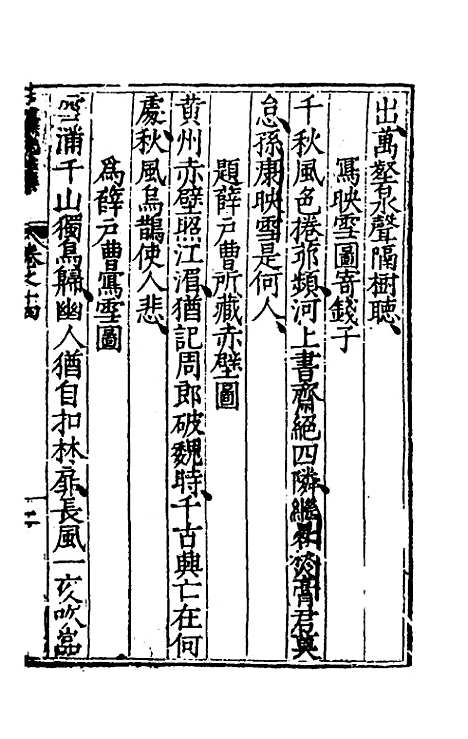 出萬壑泉聲隔樹聽
寫映雪圖寄錢子
千秋風色捲 頻河上書齋絕四隣繼 膏君莫
怠孫康映雪是何人
題薛戶曹所藏赤壁圖
黄州赤壁照江湄猶記周郎破魏時千古興亡在何
處秋風烏鵲使人悲
爲薛戶曹寫雪圖
雪浦千山獨鳥歸幽人猶自扣林扉長風一夜吹
卷之十四